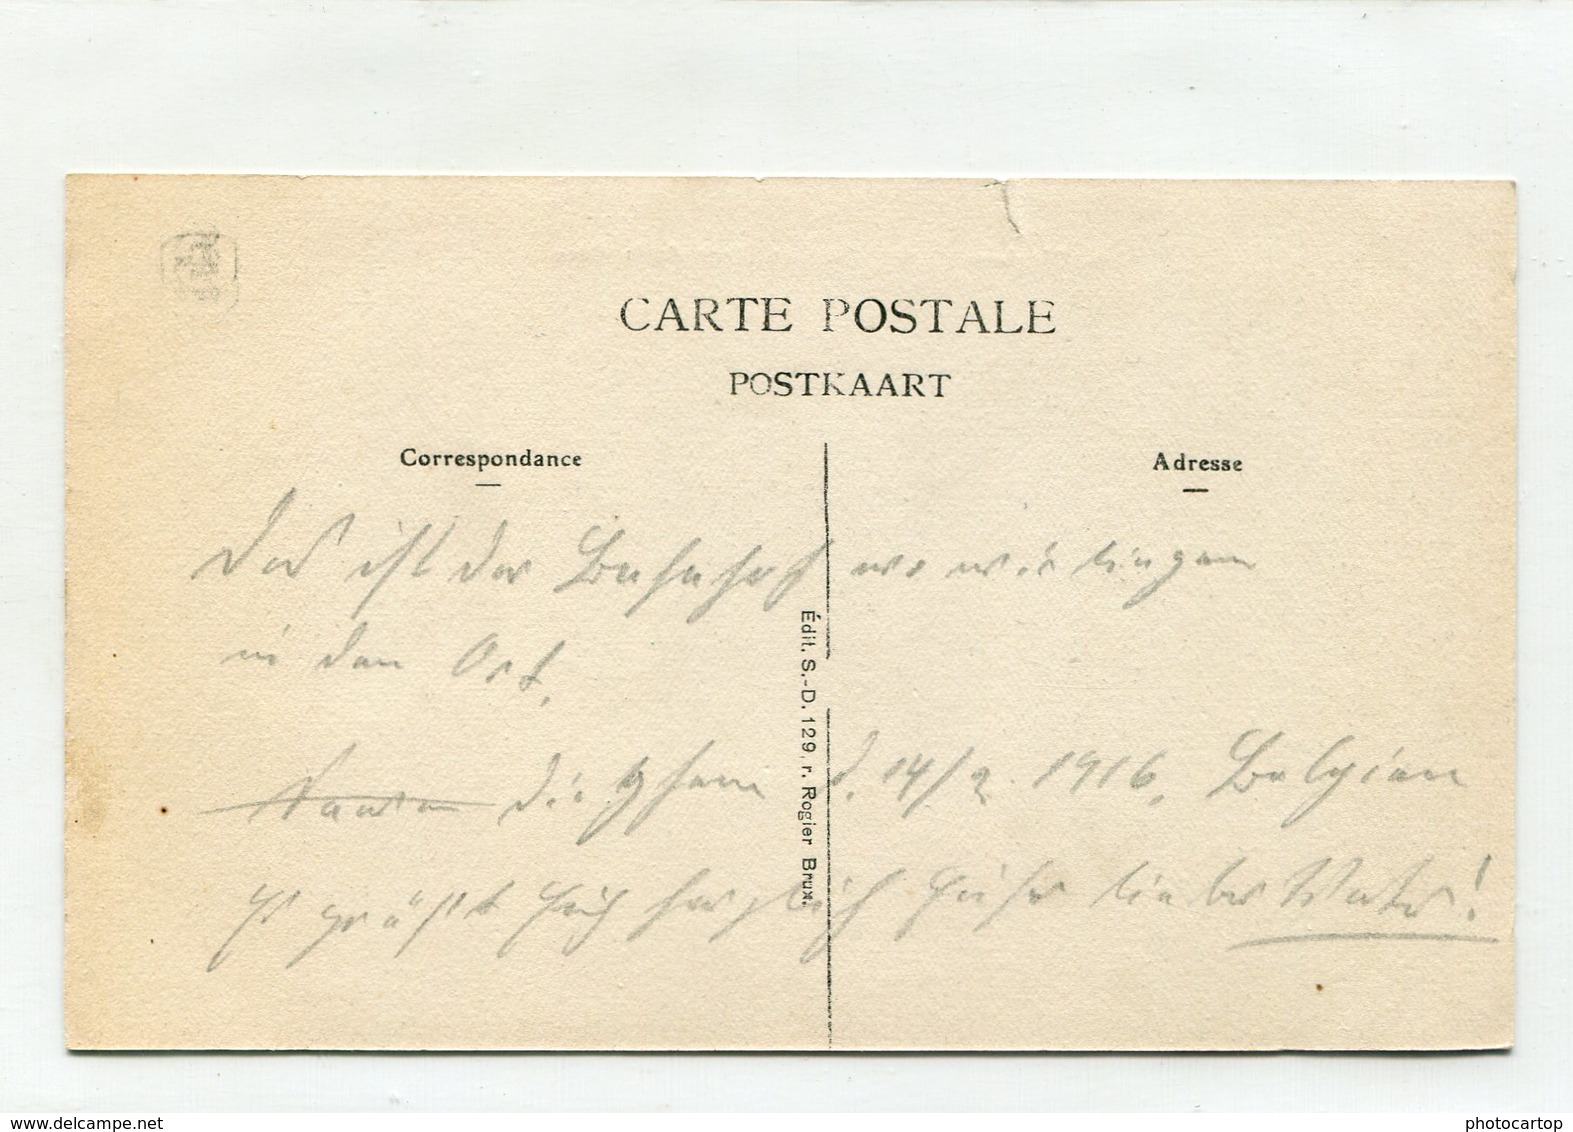 CARTE POSTALE
POSTKAART
Correspondance
Adresse
Das ist der Bahnhof wo wir liegen
in den Ort.
d. 14/2. 1916. Belgien
Es grüßt herzlich lieber Vater!
Édit. S.-D. 129, r. Rogier Brux.
www.delcampe.net
photocartop